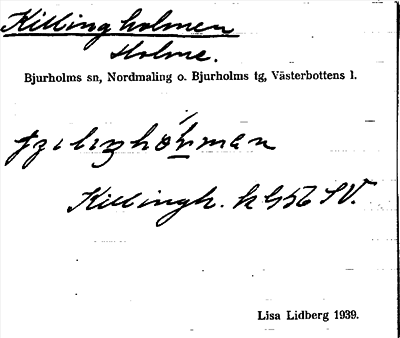 Killingholmen
Holme.
Bjurholms sn, Nordmaling o. Bjurholms tg, Västerbottens l.
Killingh.
Lisa Lidberg 1939.